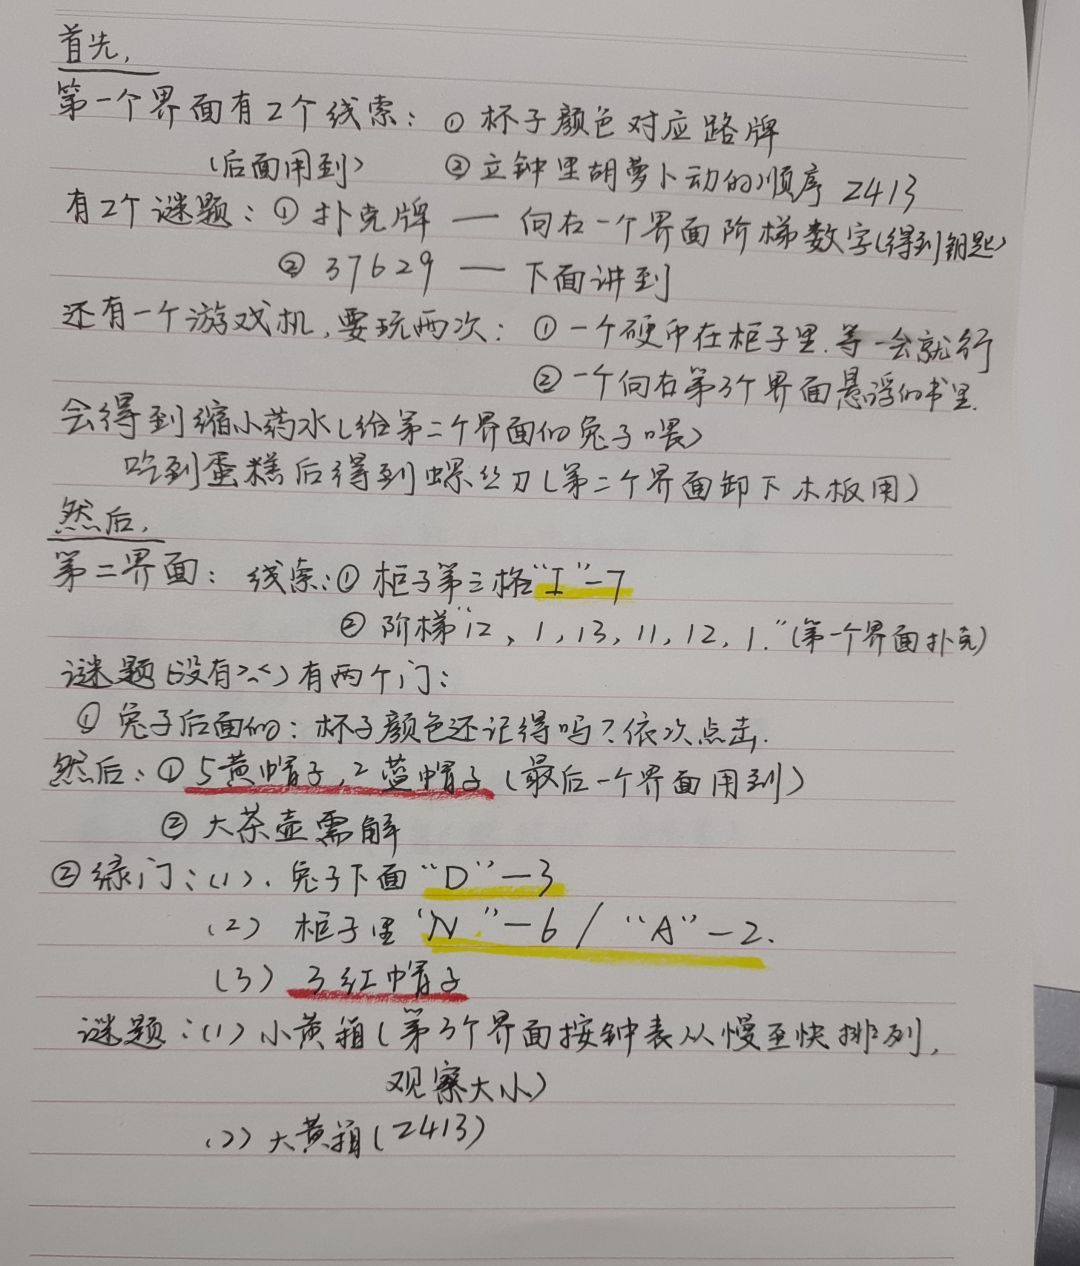 首先,
第一个界面有2个线索: ① 杯子颜色对应路牌
(后面用到) ② 立钟里胡萝卜动的顺序 2413
有2个谜题: ① 扑克牌 — 向右一个界面阶梯数字(得到钥匙)
② 37629 — 下面讲到
还有一个游戏机,要玩两次: ① 一个硬币在柜子里.等一会就行
② 一个向右第3个界面悬浮的书里.
会得到缩小药水(给第二个界面的兔子喂)
吃到蛋糕后得到螺丝刀(第二个界面卸下木板用)
然后,
第二界面: 线索:① 柜子第三格“I”-7
② 阶梯“12, 1, 13, 11, 12, 1.”(第一个界面扑克)
谜题(没有>.<)有两个门:
① 兔子后面的: 杯子颜色还记得吗?依次点击.
然后: ① 5黄帽子,2蓝帽子(最后一个界面用到)
② 大茶壶需解
② 绿门: (1). 兔子下面“D”-3
(2) 柜子里“N”-6 / “A”-2.
(3) 3红帽子
谜题: (1) 小黄箱(第3个界面按钟表从慢至快排列,
观察大小)
(2) 大黄箱(2413)